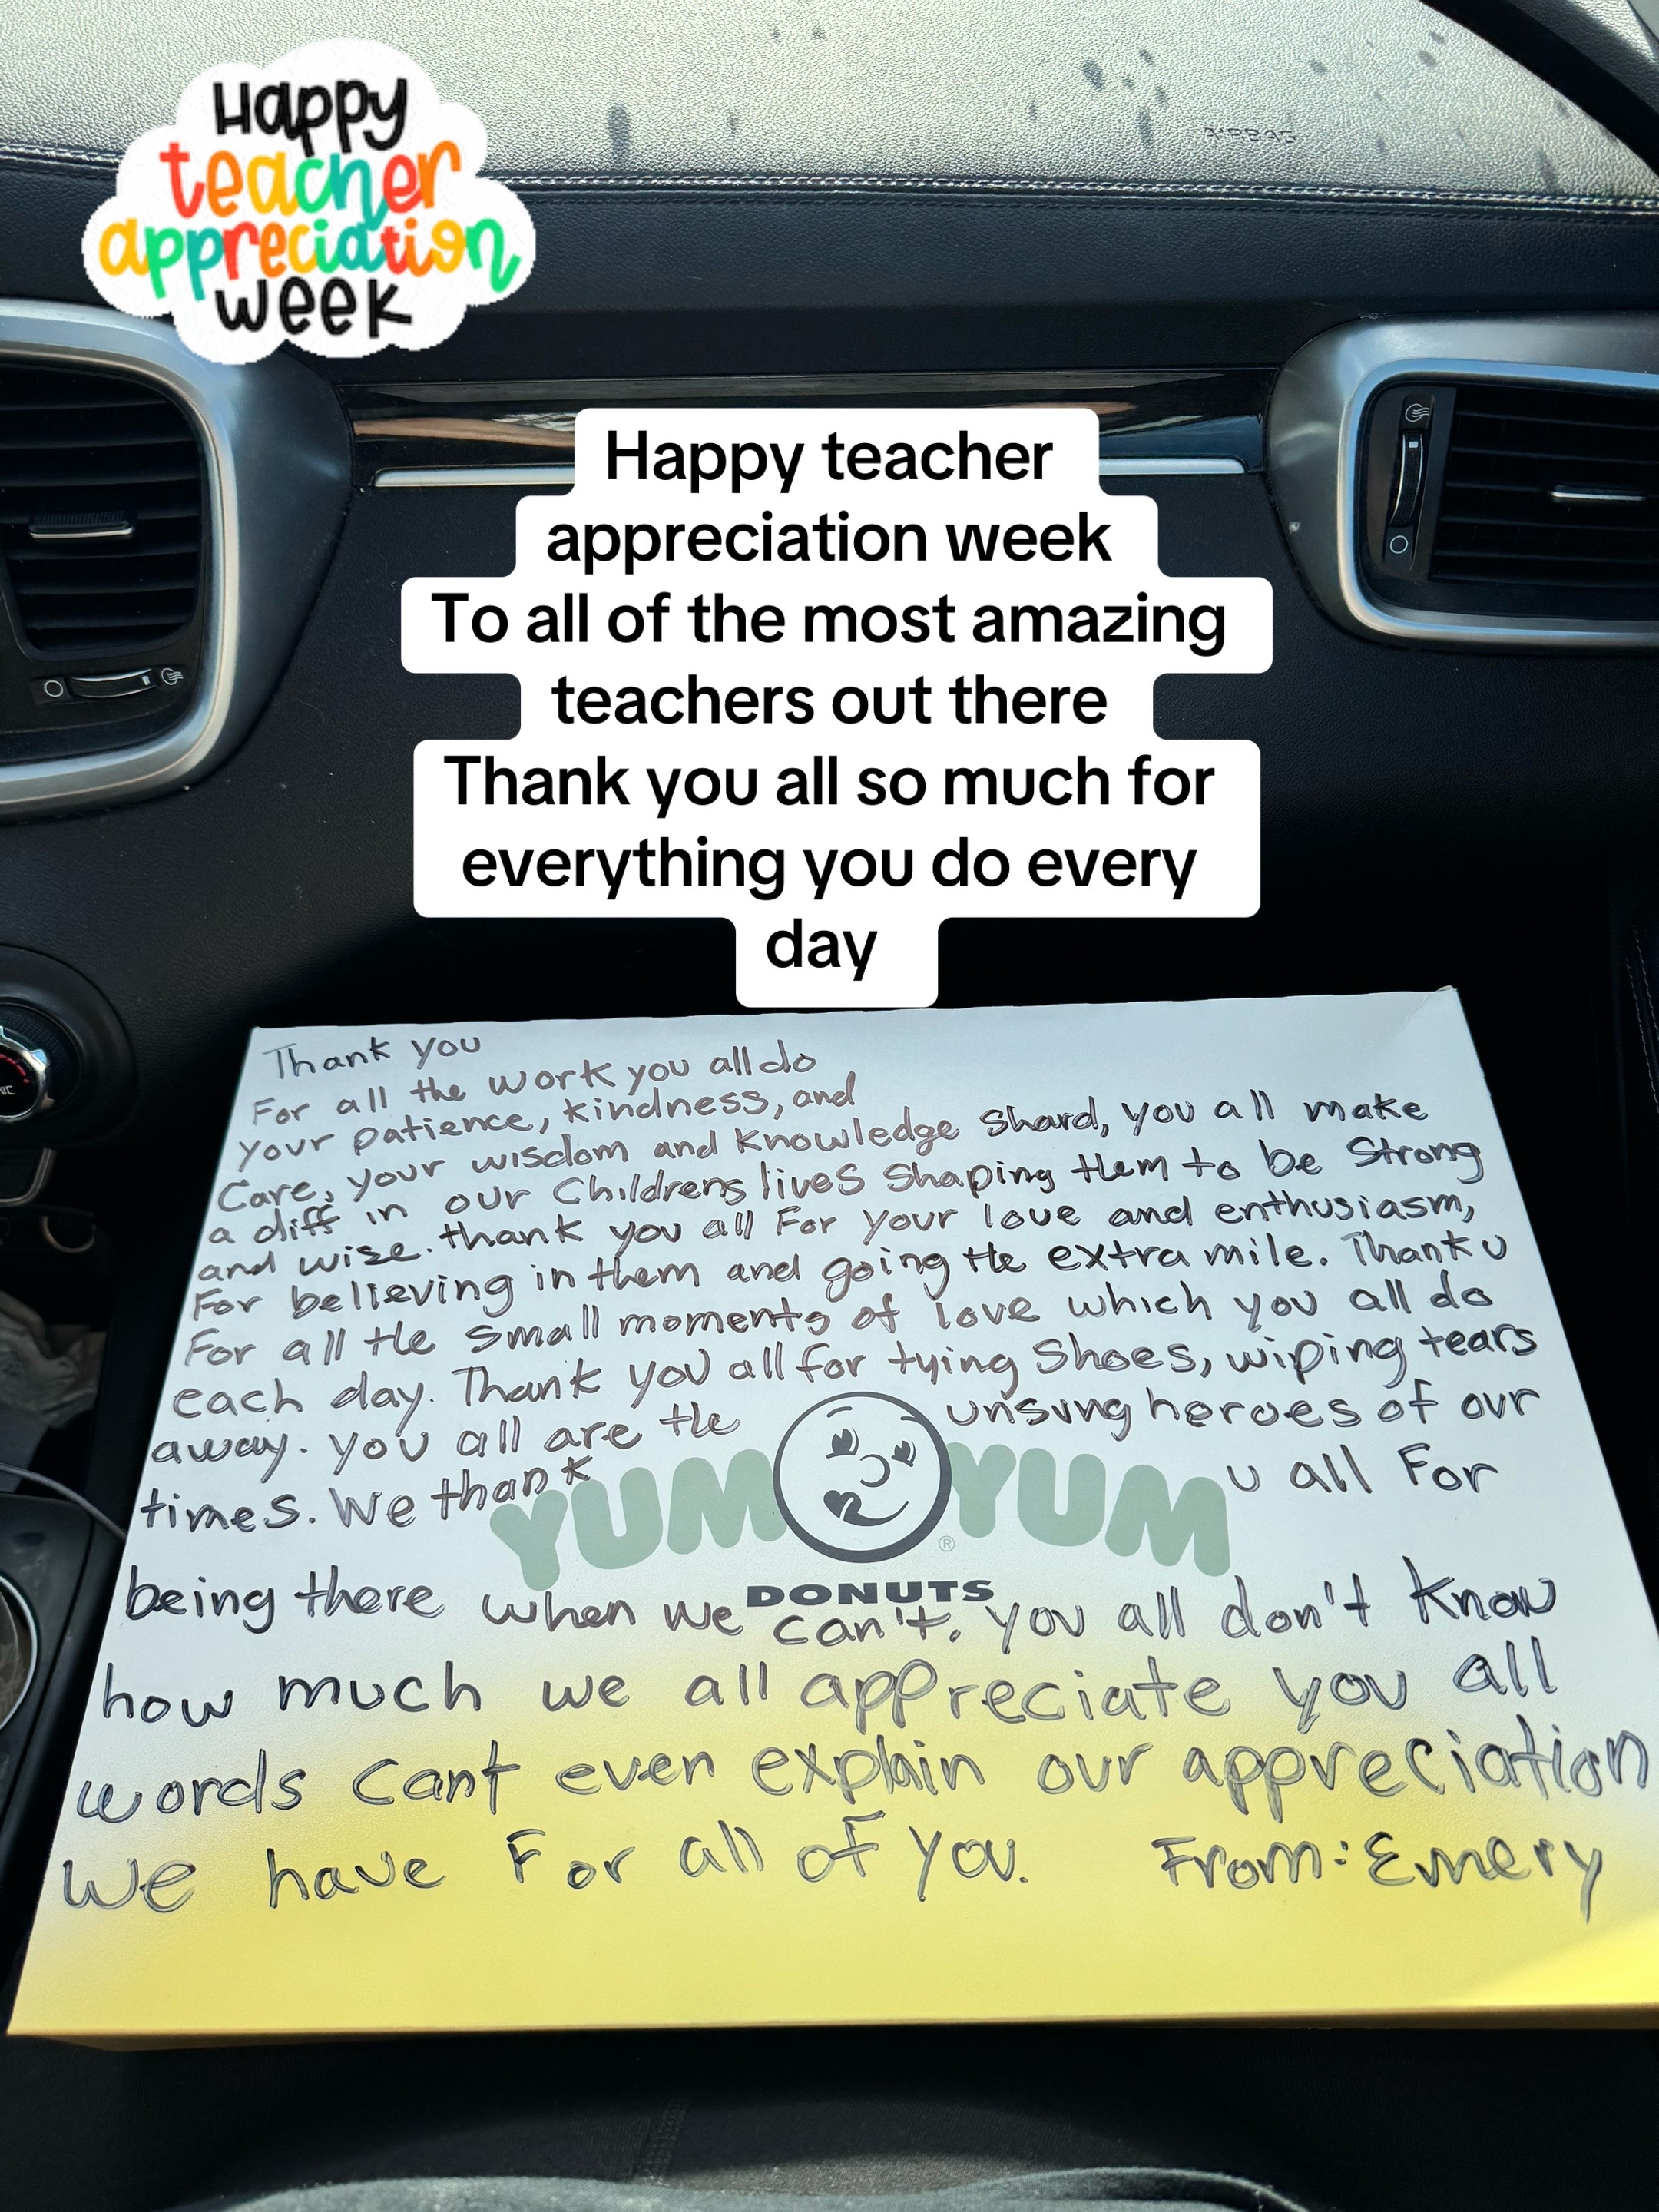 Happy
teacher
appreciation
week
AIRBAG
Happy teacher
appreciation week
To all of the most amazing
teachers out there
Thank you all so much for
everything you do every
day
Thank you
For all the work you all do
your patience, kindness, and
Care, your wisdom and knowledge shard, you all make
a diff in our Childrens lives shaping them to be strong
and wise. thank you all For your love and enthusiasm,
For believing in them and going the extra mile. Thank u
For all the small moments of love which you all do
each day. Thank you all for tying shoes, wiping tears
away. you all are the unsung heroes of our
times. We thank u all For
YUM YUM
®
DONUTS
being there when we can't. you all don't know
how much we all appreciate you all
words cant even explain our appreciation
we have For all of you. From: Emery